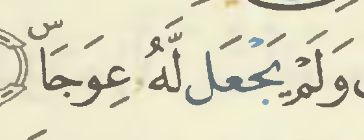 وَلَمْ يَجْعَل لَّهُۥ عِوَجَاۜ